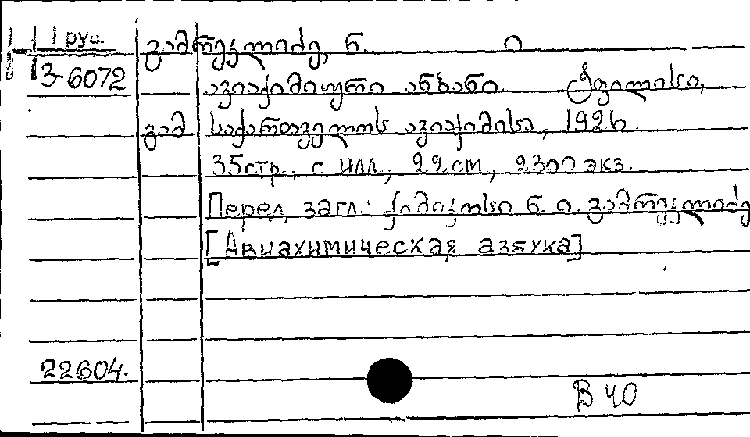 1 рус. გამრეკლიძე, ნ. ი
3-6072 ავიაქიმიური ანბანი. ტფილისი,
გამ საქართველოს ავიაქიმისა, 1926.
35стр., с илл., 22см, 2300 экз.
Перед загл.: ქიმიკოსი ნ. ი. გამრეკლიძე
[Авиахимическая азбука]
22604.
В 40